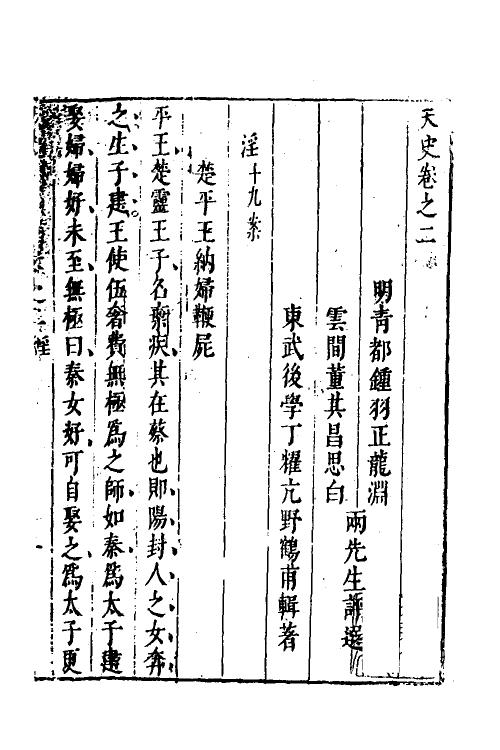 天史卷之二
明青都鍾羽正龍淵
雲間董其昌思白
兩先生評選
東武後學丁耀亢野鶴甫輯著
淫十九案
楚平王納婦鞭屍
平王楚靈王子名棄疾其在蔡也郹陽封人之女奔
之生子建王使伍奢費無極爲之師如秦爲太子建
娶婦婦好未至無極曰秦女好可自娶之爲太子更
淫